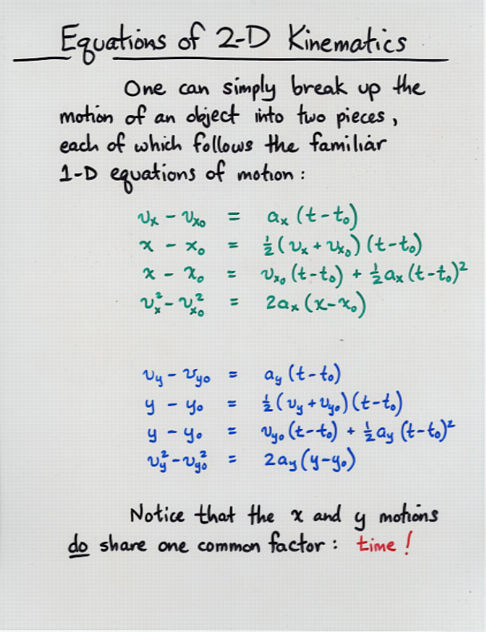 Equations of 2-D Kinematics
One can simply break up the
motion of an object into two pieces,
each of which follows the familiar
1-D equations of motion:
vₓ - vₓ₀ = aₓ (t-t₀)
x - x₀ = ½(vₓ + vₓ₀)(t-t₀)
x - x₀ = vₓ₀(t-t₀) + ½aₓ(t-t₀)²
vₓ² - vₓ₀² = 2aₓ(x-x₀)
v_y - v_y₀ = a_y (t-t₀)
y - y₀ = ½(v_y + v_y₀)(t-t₀)
y - y₀ = v_y₀(t-t₀) + ½a_y (t-t₀)²
v_y² - v_y₀² = 2a_y(y-y₀)
Notice that the x and y motions
do share one common factor: time!